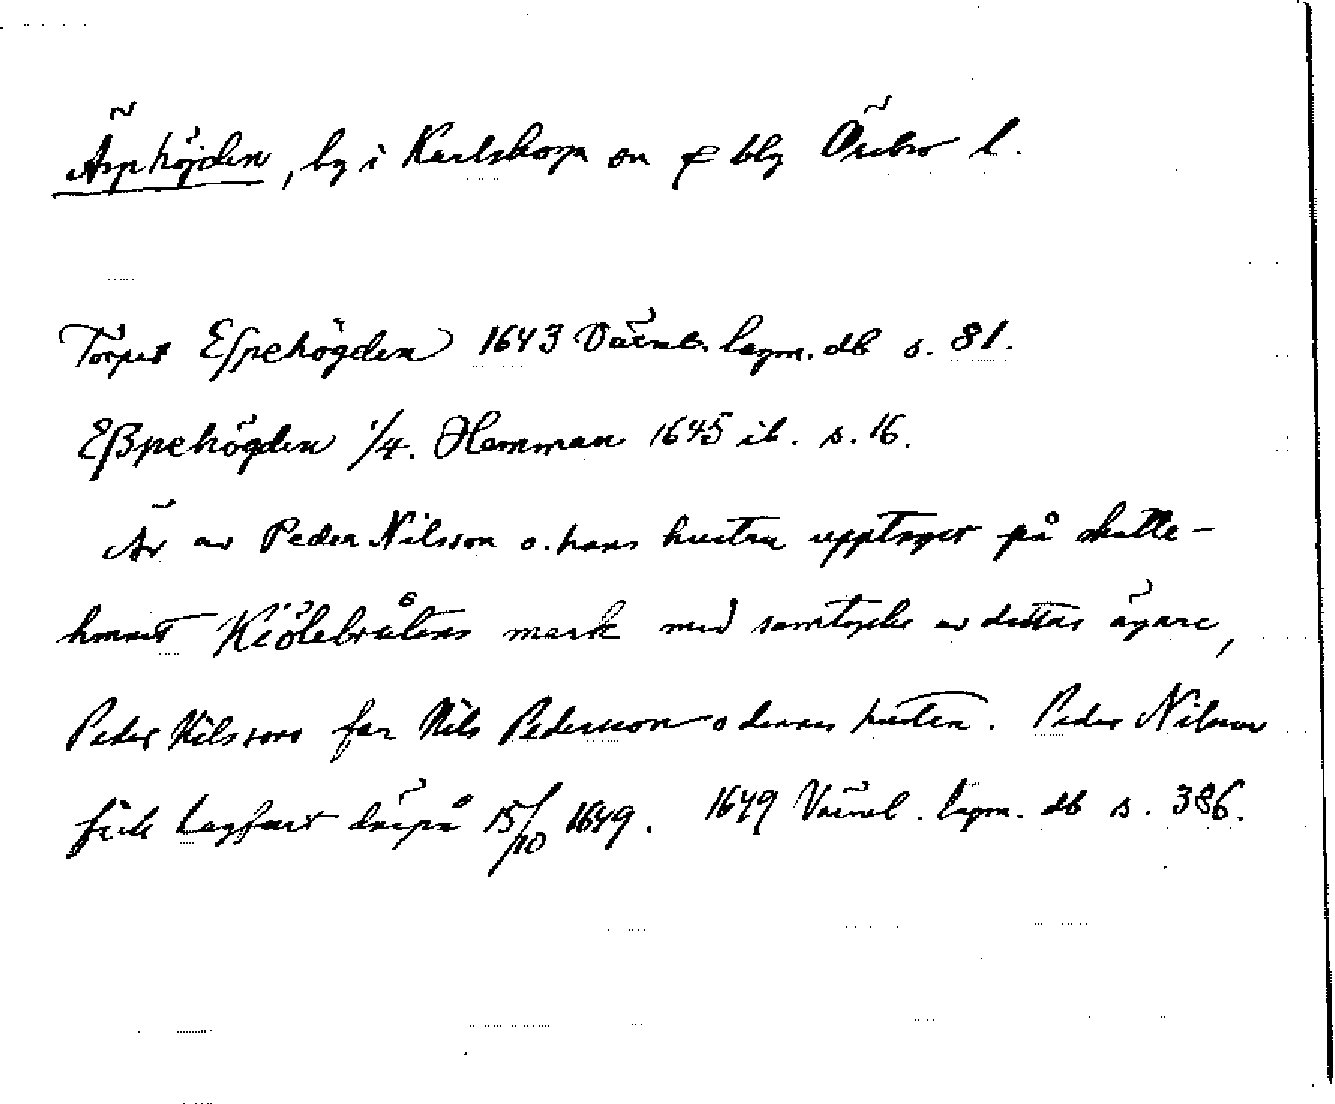 Äsphöjden, by i Karlskoga sn o bg Örebro l.
Torpet Eſpehögden 1643 Värml. lagm. db s. 81.
Eßpehögden 1/4. Hemman 1645 ib. s. 16.
Är av Peder Nilsson o. hans hustru upptaget på skatte-
hemmet Kiölebråtens mark med samtycke av dettas ägare,
Peder Nilssons far Nils Pedersson o dennes hustru. Peder Nilsson
fick lagfart därpå 15/10 1649. 1649 Värml. lagm. db s. 386.